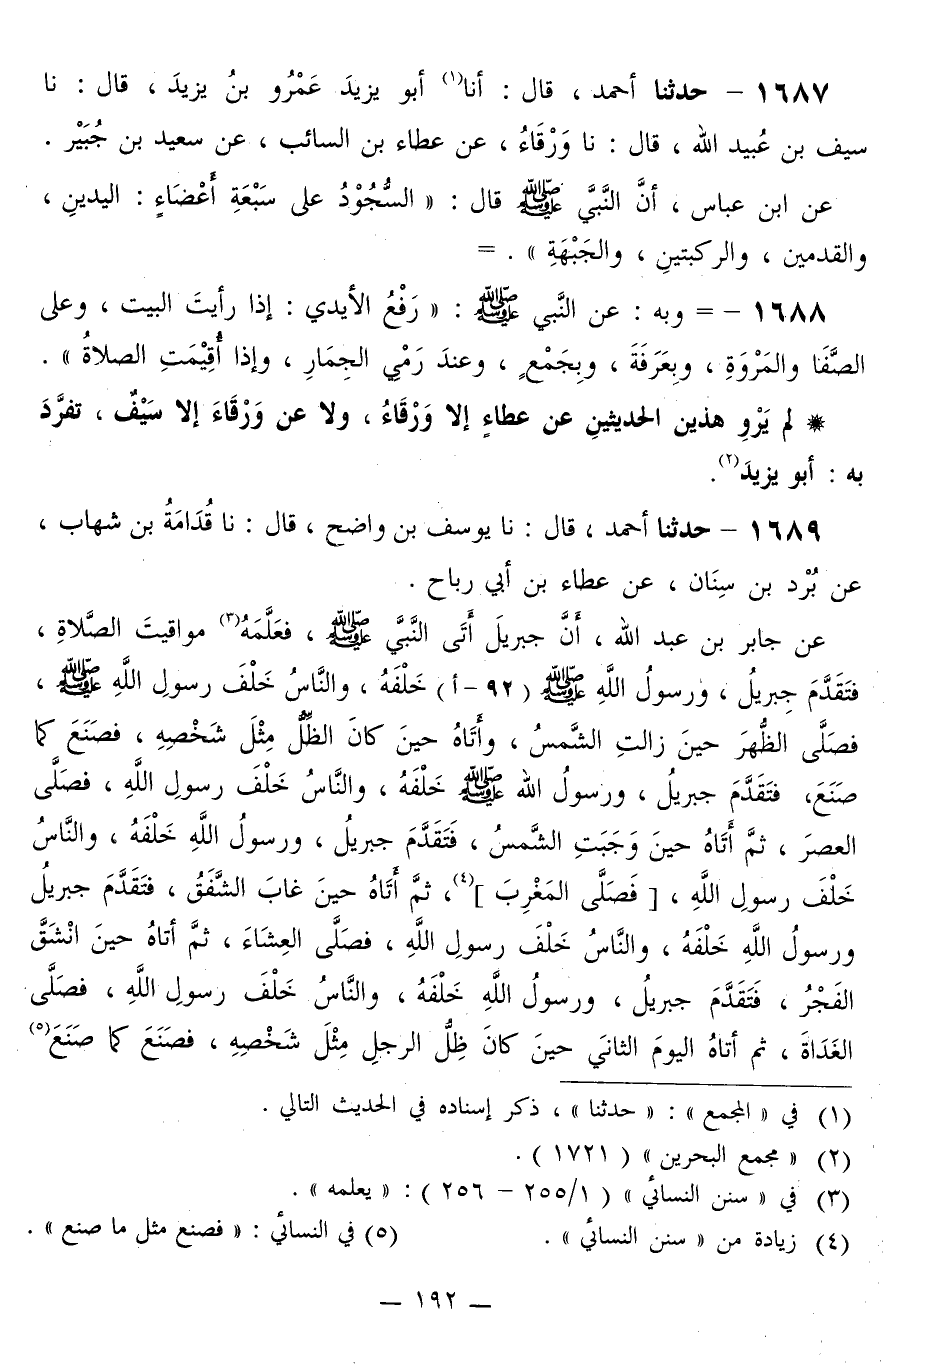 ١٦٨٧ – حدثنا أحمد ، قال : أنا(١) أبو يزيدَ عَمْرُو بنُ يزيدَ ، قال : نا
سيف بن عُبيد الله ، قال : نا وَرْقَاءُ ، عن عطاء بن السائب ، عن سعيد بن جُبَيْر .
عن ابن عباس ، أنَّ النَّبيَّ ﷺ قال : « السُّجُوْدُ على سَبْعَةِ أَعْضَاءٍ : اليدينِ ،
والقدمين ، والركبتينِ ، والجَبْهَةِ » . =
١٦٨٨ – = وبه : عن النَّبي ﷺ : « رَفْعُ الأيدي : إذا رأيتَ البيت ، وعلى
الصَّفَا والمَرْوَةِ ، وبِعَرَفَةَ ، وبِجَمْعٍ ، وعندَ رَمْيِ الجِمَارِ ، وإذا أُقِيْمَتِ الصلاةُ » .
* لم يَرْوِ هذين الحديثينِ عن عطاءٍ إلا وَرْقَاءُ ، ولا عن وَرْقَاءَ إلا سَيْفٌ ، تفرَّدَ
به : أبو يزيدَ(٢).
١٦٨٩ – حدثنا أحمد ، قال : نا يوسف بن واضح ، قال : نا قُدَامَةُ بن شهاب ،
عن بُرْد بن سِنَان ، عن عطاء بن أبي رباح .
عن جابر بن عبد الله ، أنَّ جبريلَ أَتَى النَّبيَّ ﷺ ، فعَلَّمَهُ(٣) مواقيتَ الصَّلاةِ ،
فتَقَدَّمَ جِبريلُ ، ورسولُ اللَّهِ ﷺ (٩٢–أ) خَلْفَهُ ، والنَّاسُ خَلْفَ رسولِ اللَّهِ ﷺ ،
فصَلَّى الظُّهرَ حينَ زالتِ الشَّمسُ ، وأَتَاهُ حينَ كانَ الظِّلُّ مِثْلَ شَخْصِهِ ، فصَنَعَ كما
صَنَعَ، فتَقَدَّمَ جبريلُ ، ورسولُ الله ﷺ خَلْفَهُ ، والنَّاسُ خَلْفَ رسولِ اللَّهِ ، فصَلَّى
العصرَ ، ثمَّ أَتَاهُ حينَ وَجَبَتِ الشَّمسُ ، فَتَقَدَّمَ جبريلُ ، ورسولُ اللَّهِ خَلْفَهُ ، والنَّاسُ
خَلْفَ رسولِ اللَّهِ ، [ فَصَلَّى المَغْرِبَ ](٤)، ثمَّ أَتَاهُ حينَ غابَ الشَّفَقُ ، فتَقَدَّمَ جبريلُ
ورسولُ اللَّهِ خَلْفَهُ ، والنَّاسُ خَلْفَ رسولِ اللَّهِ ، فصَلَّى العِشَاءَ ، ثمَّ أتاهُ حينَ انْشَقَّ
الفَجْرُ ، فَتَقَدَّمَ جبريلُ ، ورسولُ اللَّهِ خَلْفَهُ ، والنَّاسُ خَلْفَ رسولِ اللَّهِ ، فصَلَّى
الغَدَاةَ ، ثم أتاهُ اليومَ الثانيَ حينَ كانَ ظِلُّ الرجلِ مِثْلَ شَخْصِهِ ، فصَنَعَ كما صَنَعَ(٥)
(١) في « المجمع » : « حدثنا » ، ذكر إسناده في الحديث التالي .
(٢) « مجمع البحرين » ( ١٧٢١ ) .
(٣) في « سنن النسائي » ( ١/٢٥٥ – ٢٥٦ ) : « يعلمه » .
(٤) زيادة من « سنن النسائي » . (٥) في النسائي : « فصنع مثل ما صنع » .
– ١٩٢ –